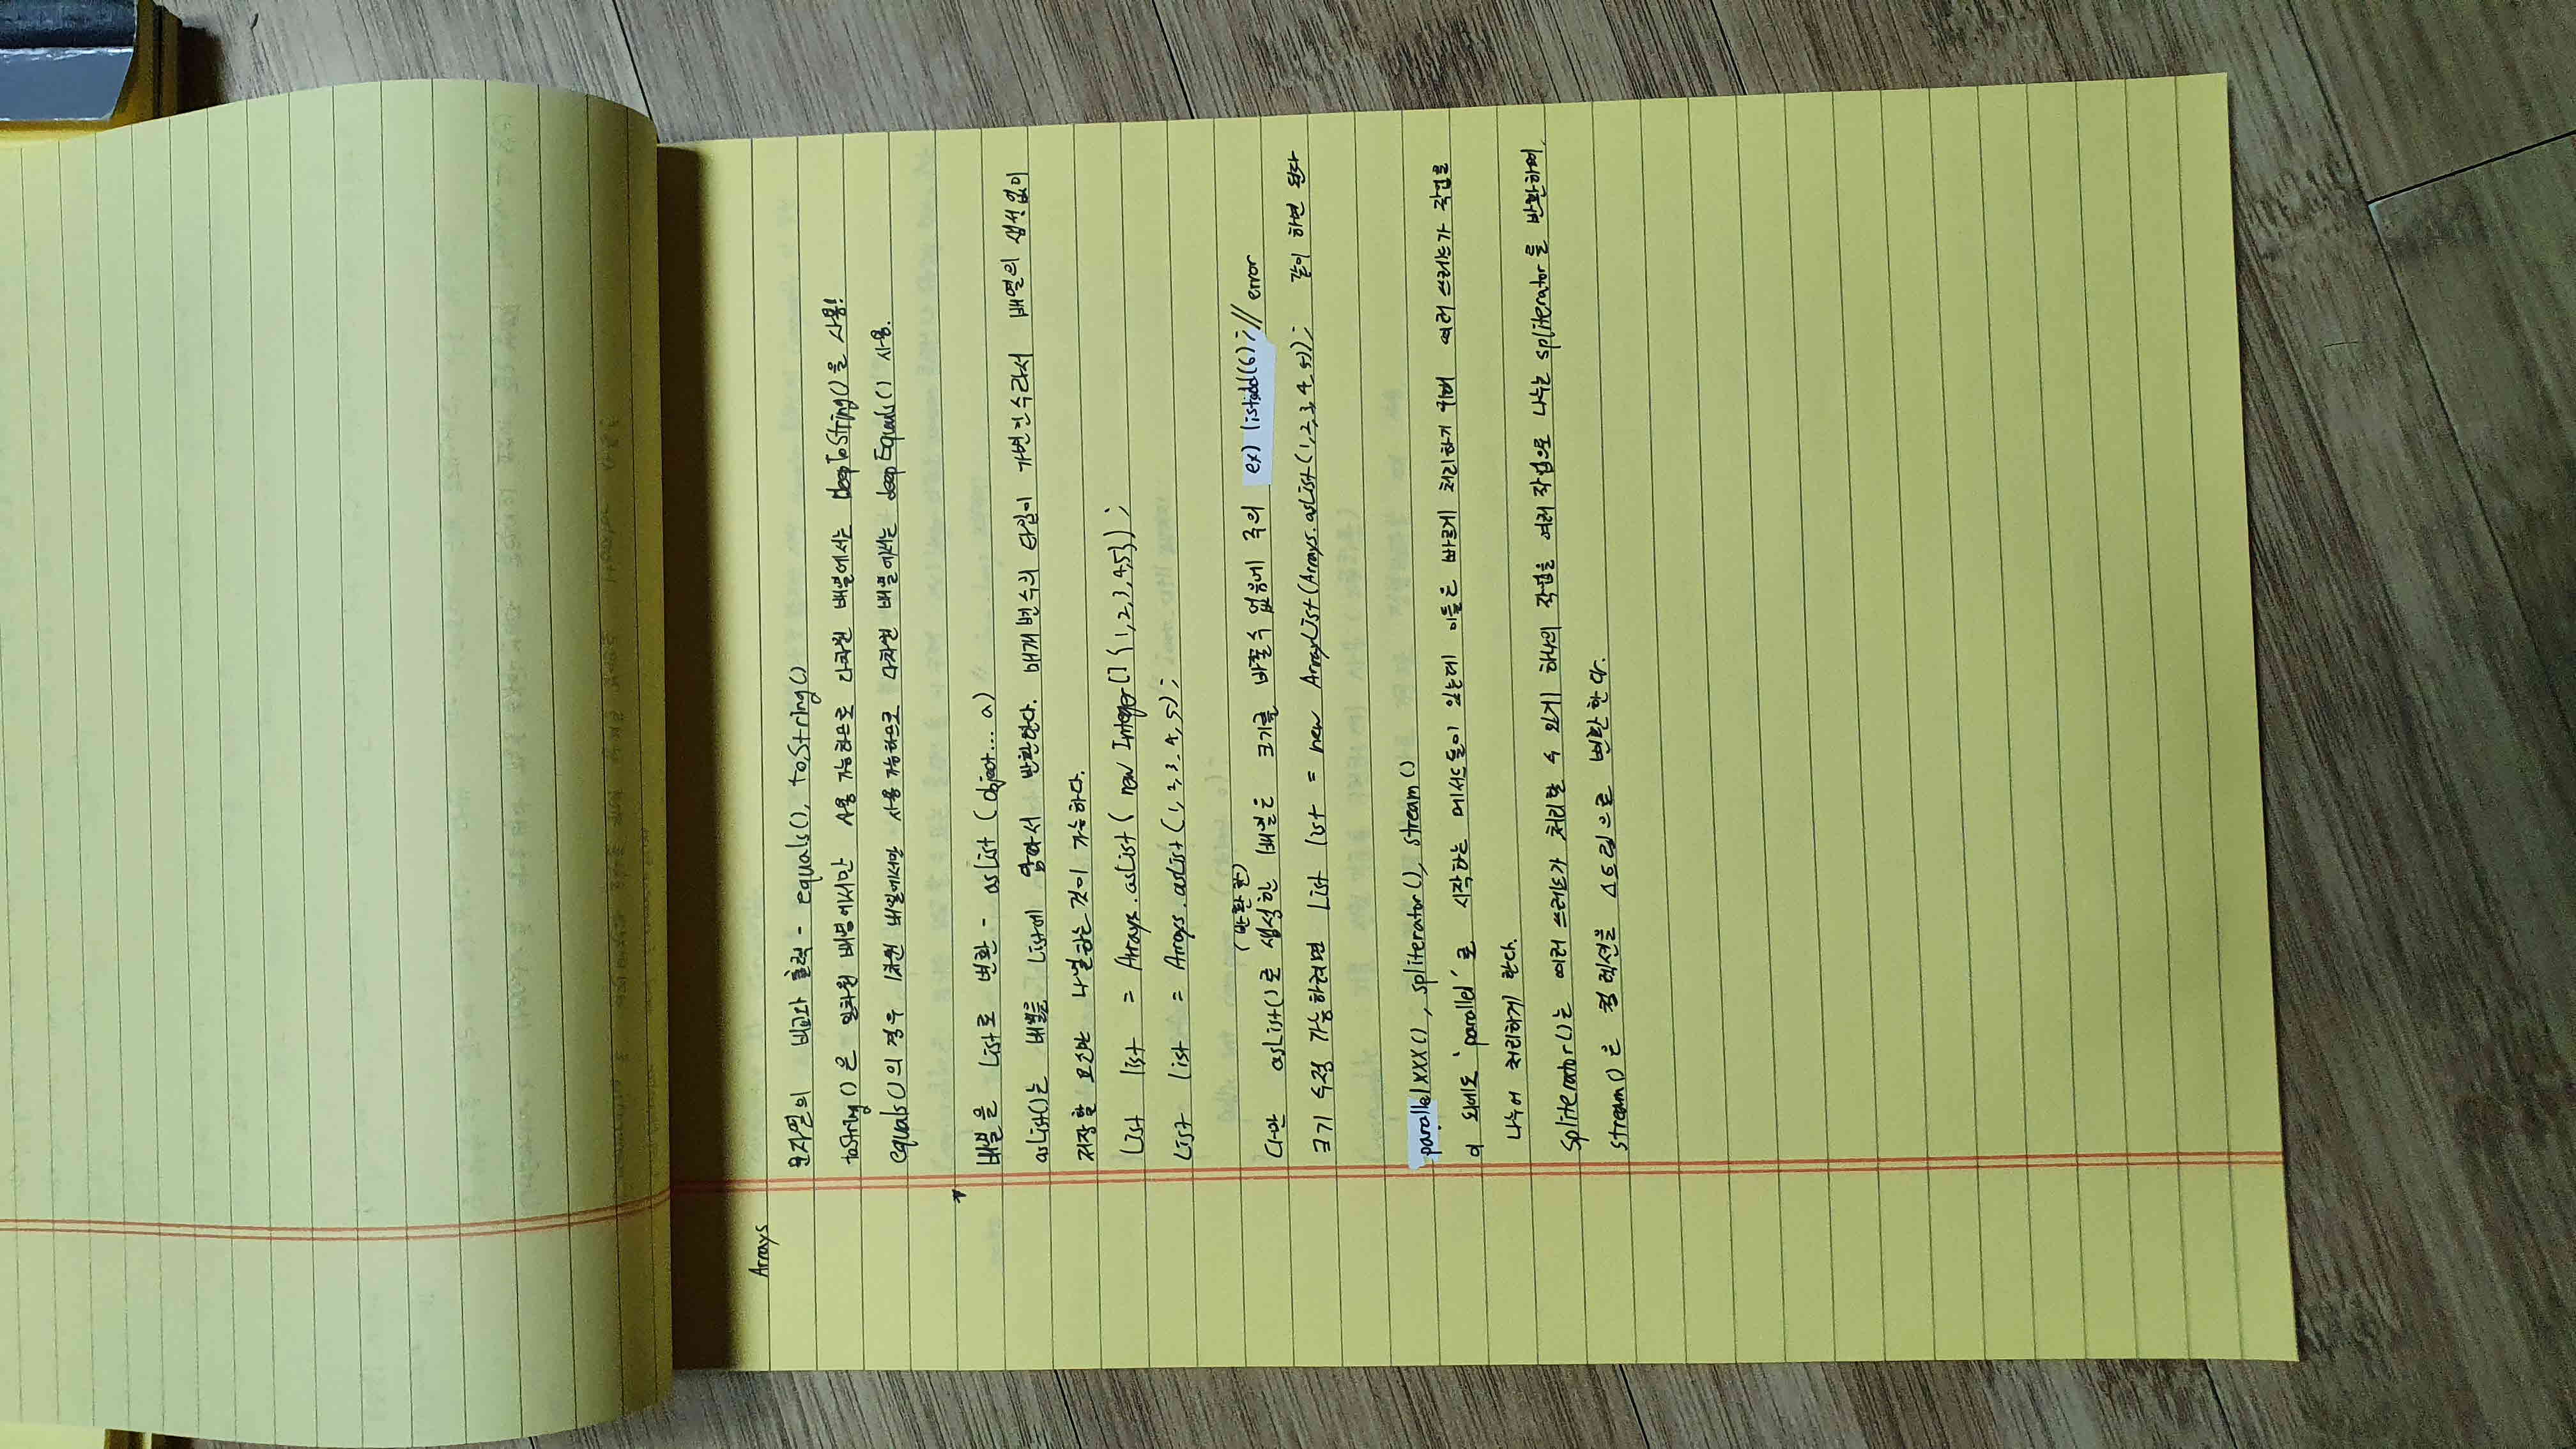 Arrays
문자열의 비교와 출력 - equals(), toString()
toString()은 일차원 배열에서만 사용 가능하므로 다차원 배열에서는 deepToString()을 사용!
equals()의 경우 1차원 배열에서만 사용 가능하므로 다차원 배열에서는 deepEquals() 사용.
배열을 List로 변환 - asList (object... a)
asList()는 배열을 List에 담아서 반환한다. 매개변수의 타입이 가변인수라서 배열의 생성없이
저장할 요소만 나열하는 것이 가능하다.
List list = Arrays.asList( new Integer[] {1,2,3,4,5});
List list = Arrays.asList(1,2,3,4,5);
(반환한)
다만 asList()로 생성한 배열은 크기를 바꿀수 없음에 주의 ex) list.add(6); // error
크기 수정 가능하려면 List list = new ArrayList(Arrays.asList(1,2,3,4,5)); 같이 하면 된다
parallelXXX(), spliterator(), stream()
이 외에도 'parallel'로 시작하는 메서드들이 있는데 이들은 빠르게 처리하기 위해 여러 쓰레드가 작업을
나누어 처리하게 한다.
spliterator()는 여러 쓰레드가 처리할 수 있게 하나의 작업을 여러 작업으로 나누는 spliterator를 반환하며,
stream()은 컬렉션을 스트림으로 변환한다.